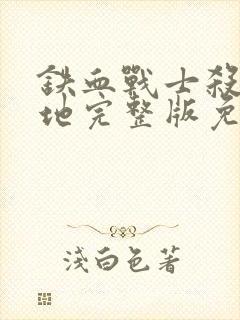 鐵血戰士殺
地完整版免
淺白色著